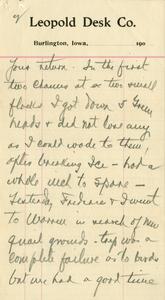 Leopold Desk Co.
Burlington, Iowa, 190
your return. In the first
two chances at or two small
flocks I got down 5 Green
heads & did not lose any
as I could wade to them,
after breaking Ice - had a
whole well to spare -
Yesterday Frederic & I went
to Warren in search of new
quail grounds. trip was a
complete failure as to birds
but we had a good time